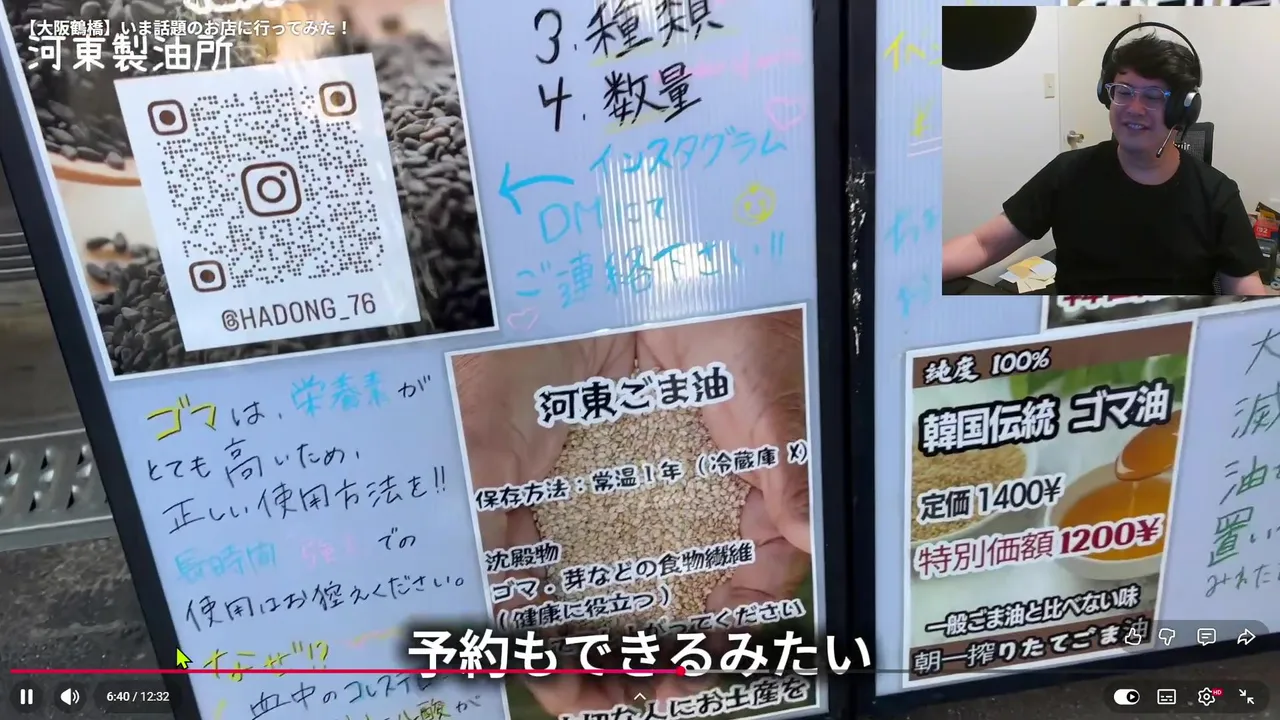 【大阪鶴橋】いま話題のお店に行ってみた！
河東製油所
@HADONG_76
3. 種類
4. 数量
インスタグラム
DMにて
ご連絡下さい!!
ゴマは、栄養素が
とても高いため、
正しい使用方法を!!
長時間 での
使用はお控えください。
なぜ!?
血中のコレステ
河東ごま油
保存方法：常温1年（冷蔵庫 X）
沈殿物
ゴマ・芽などの食物繊維
（健康に役立つ）
がってください
大切な人にお土産を
純度 100%
韓国伝統 ゴマ油
定価 1400¥
特別価額 1200¥
一般ごま油と比べない味
朝一搾りたてごま油
大
滅
油
置い
みれた
予約もできるみたい
6:40 / 12:32
HD